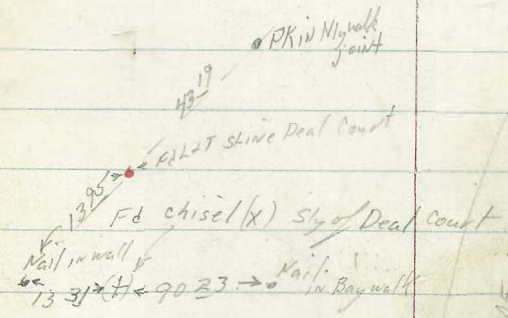 PK in Nlywalk
joint
43 19
Fd L&T S line Deal Court
13 95
Fd chisel (x) Sly of Deal Court
Nail in wall
13 31 (+) 90 23 Nail
in Baywalk